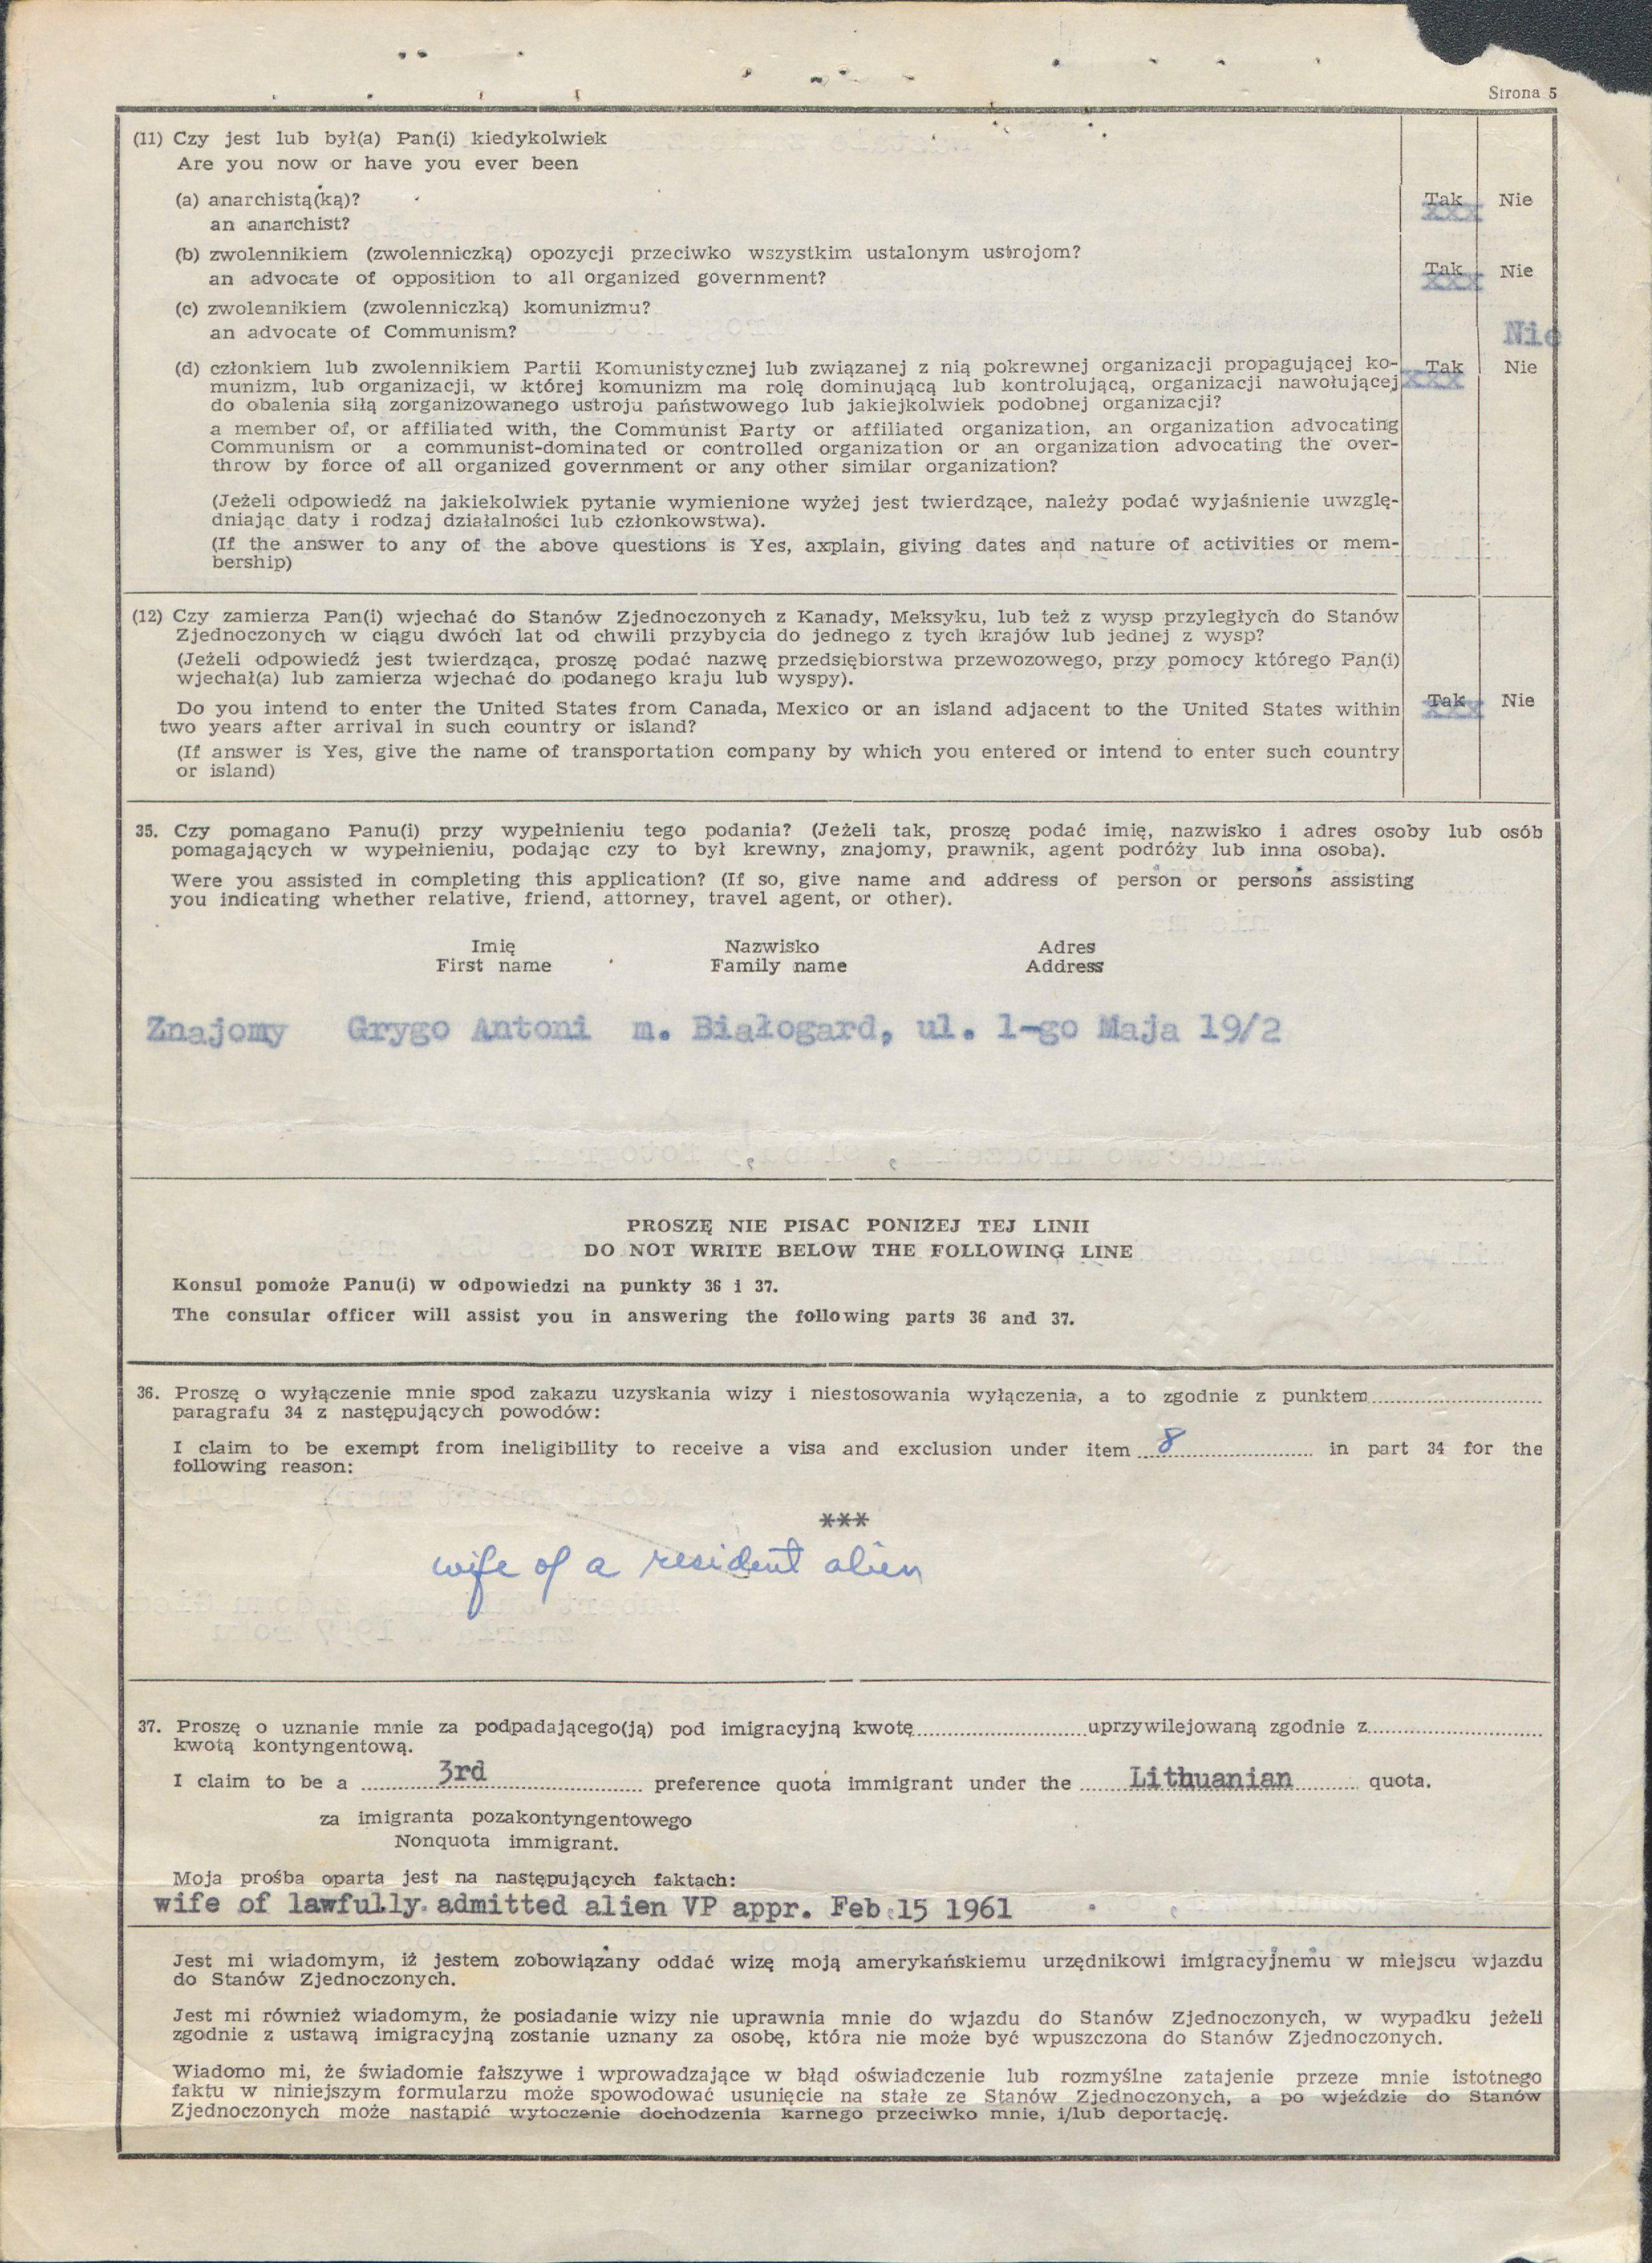 Strona 5
(11) Czy jest lub był(a) Pan(i) kiedykolwiek
Are you now or have you ever been
(a) anarchistą(ką)?
an anarchist?
Tak xxx Nie
(b) zwolennikiem (zwolenniczką) opozycji przeciwko wszystkim ustalonym ustrojom?
an advocate of opposition to all organized government?
Tak xxx Nie
(c) zwolennikiem (zwolenniczką) komunizmu?
an advocate of Communism?
Nie
(d) członkiem lub zwolennikiem Partii Komunistycznej lub związanej z nią pokrewnej organizacji propagującej ko-
munizm, lub organizacji, w której komunizm ma rolę dominującą lub kontrolującą, organizacji nawołującej
do obalenia siłą zorganizowanego ustroju państwowego lub jakiejkolwiek podobnej organizacji?
Tak xxx Nie
a member of, or affiliated with, the Communist Party or affiliated organization, an organization advocating
Communism or a communist-dominated or controlled organization or an organization advocating the over-
throw by force of all organized government or any other similar organization?
(Jeżeli odpowiedź na jakiekolwiek pytanie wymienione wyżej jest twierdzące, należy podać wyjaśnienie uwzglę-
dniając daty i rodzaj działalności lub członkowstwa).
(If the answer to any of the above questions is Yes, axplain, giving dates and nature of activities or mem-
bership)
(12) Czy zamierza Pan(i) wjechać do Stanów Zjednoczonych z Kanady, Meksyku, lub też z wysp przyległych do Stanów
Zjednoczonych w ciągu dwóch lat od chwili przybycia do jednego z tych krajów lub jednej z wysp?
(Jeżeli odpowiedź jest twierdząca, proszę podać nazwę przedsiębiorstwa przewozowego, przy pomocy którego Pan(i)
wjechał(a) lub zamierza wjechać do podanego kraju lub wyspy).
Do you intend to enter the United States from Canada, Mexico or an island adjacent to the United States within
two years after arrival in such country or island?
Tak xxx Nie
(If answer is Yes, give the name of transportation company by which you entered or intend to enter such country
or island)
35. Czy pomagano Panu(i) przy wypełnieniu tego podania? (Jeżeli tak, proszę podać imię, nazwisko i adres osoby lub osób
pomagających w wypełnieniu, podając czy to był krewny, znajomy, prawnik, agent podróży lub inna osoba).
Were you assisted in completing this application? (If so, give name and address of person or persons assisting
you indicating whether relative, friend, attorney, travel agent, or other).
Imię Nazwisko Adres
First name Family name Address
Znajomy Grygo Antoni m. Białogard, ul. 1-go Maja 19/2
PROSZĘ NIE PISAC PONIZEJ TEJ LINII
DO NOT WRITE BELOW THE FOLLOWING LINE
Konsul pomoże Panu(i) w odpowiedzi na punkty 36 i 37.
The consular officer will assist you in answering the following parts 36 and 37.
36. Proszę o wyłączenie mnie spod zakazu uzyskania wizy i niestosowania wyłączenia, a to zgodnie z punktem
paragrafu 34 z następujących powodów:
I claim to be exempt from ineligibility to receive a visa and exclusion under item 8 in part 34 for the
following reason:
***
wife of a resident alien
37. Proszę o uznanie mnie za podpadającego(ją) pod imigracyjną kwotę uprzywilejowaną zgodnie z
kwotą kontyngentową.
I claim to be a 3rd preference quota immigrant under the Lithuanian quota.
za imigranta pozakontyngentowego
Nonquota immigrant.
Moja prośba oparta jest na następujących faktach:
wife of lawfully admitted alien VP appr. Feb 15 1961
Jest mi wiadomym, iż jestem zobowiązany oddać wizę moją amerykańskiemu urzędnikowi imigracyjnemu w miejscu wjazdu
do Stanów Zjednoczonych.
Jest mi również wiadomym, że posiadanie wizy nie uprawnia mnie do wjazdu do Stanów Zjednoczonych, w wypadku jeżeli
zgodnie z ustawą imigracyjną zostanie uznany za osobę, która nie może być wpuszczona do Stanów Zjednoczonych.
Wiadomo mi, że świadomie fałszywe i wprowadzające w błąd oświadczenie lub rozmyślne zatajenie przeze mnie istotnego
faktu w niniejszym formularzu może spowodować usunięcie na stałe ze Stanów Zjednoczonych, a po wjeździe do Stanów
Zjednoczonych może nastąpić wytoczenie dochodzenia karnego przeciwko mnie, i/lub deportację.